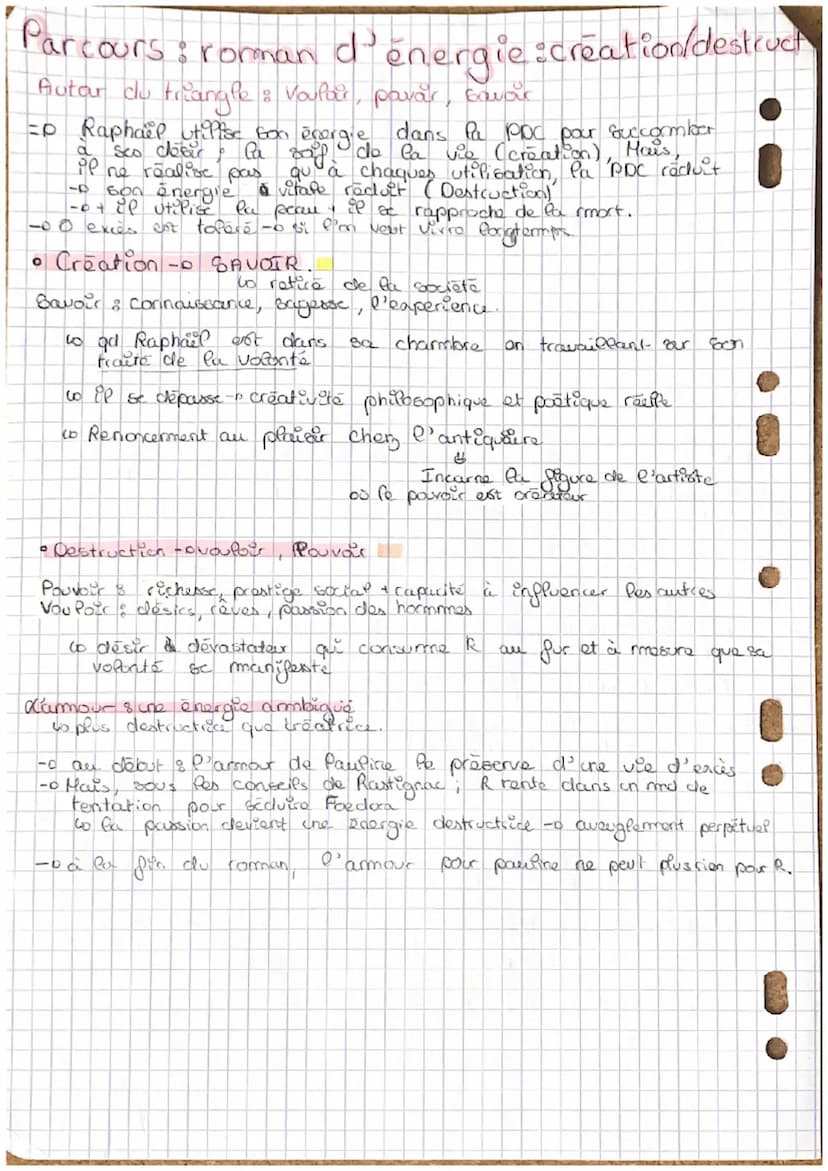 Parcours : roman d'énergie : création/destruct
Autour du triangle : Vouloir, pouvoir, Savoir
=D Raphaël utilise son énergie dans la PDC pour succomber
à ses désir, la soif de la vie (création), Mais,
il ne réalise pas qu'à chaques utilisation, la PDC réduit
-o son énergie vitale réduit (Destruction)
-o + il utilise la peau + il se rapproche de la mort.
-o 0 excès est toléré -o si l'on veut vivre longtemps.
• Création -o SAVOIR.
↳ retiré de la société
Savoir : connaissance, sagesse, l'expérience.
↳ qd Raphaël est dans sa chambre en travaillant sur son
traité de la volonté
↳ il se dépasse -o créativité philosophique et poétique réelle
↳ Renoncement au plaisir chez l'antiquaire
⇓
Incarne la figure de l'artiste
où le pouvoir est créateur
• Destruction -o vouloir, Pouvoir
Pouvoir : richesse, prestige social + capacité à influencer les autres
Vouloir : désirs, rêves, passion des hommes
↳ désir dévastateur qui consume R au fur et à mesure que sa
volonté se manifeste
L'amour : une énergie ambiguë
↳ plus destructrice que créatrice.
-o au début : l'amour de Pauline le préserve d'une vie d'excès
-o Mais, sous les conseils de Rastignac ; R rente dans un md de
tentation pour séduire Foedora
↳ la passion devient une énergie destructrice -o aveuglement perpétuel
-o à la fin du roman, l'amour pour pauline ne peut plus rien pour R.